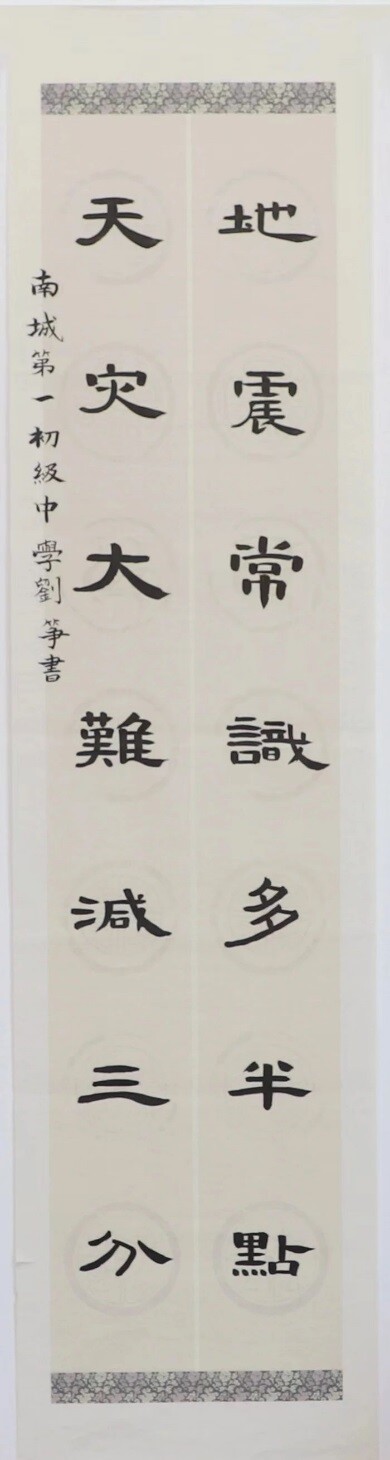 地震常識多半點
天灾大難減三分
南城第一初級中學劉箏書